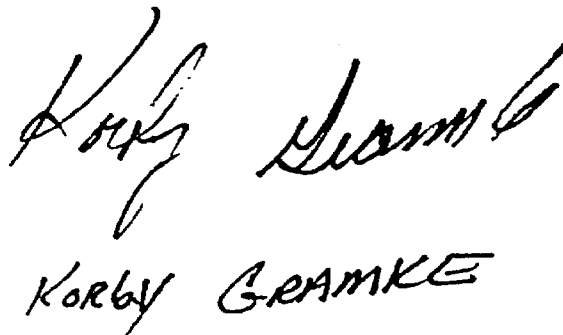 Korby Gramke
KORBY GRAMKE